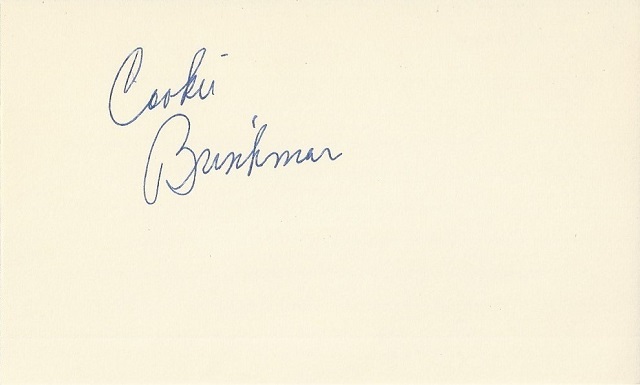 Cookie
Brinkman